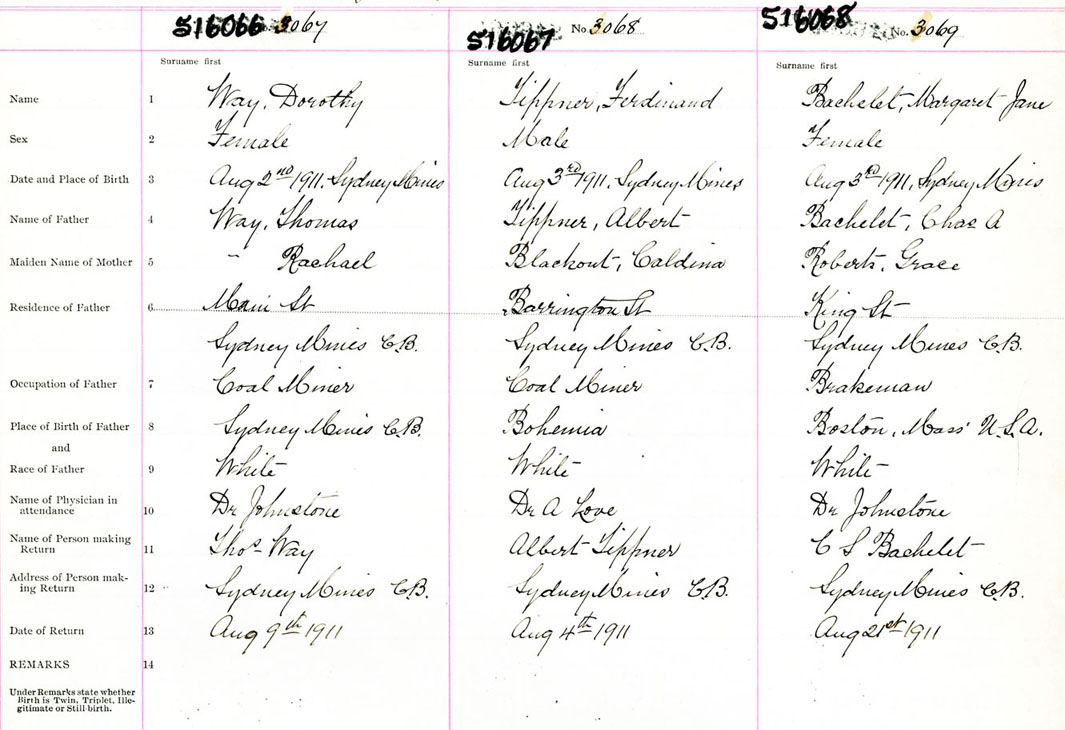 516066 No. 3067 516067 No. 3068 516068 No. 3069
Surname first Surname first Surname first
Name 1 Way, Dorothy Tippner, Ferdinand Bachelet, Margaret Jane
Sex 2 Female Male Female
Date and Place of Birth 3 Aug 2nd 1911. Sydney Mines Aug 3rd 1911. Sydney Mines Aug 3rd 1911, Sydney Mines
Name of Father 4 Way, Thomas Tippner, Albert Bachelet, Chas A
Maiden Name of Mother 5 " Rachael Blackout, Caldina Roberts, Grace
Residence of Father 6 Main St Barrington St King St
Sydney Mines C.B. Sydney Mines C.B. Sydney Mines C.B.
Occupation of Father 7 Coal Miner Coal Miner Brakeman
Place of Birth of Father 8 Sydney Mines C.B. Bohemia Boston, Mass U.S.A.
and
Race of Father 9 White White White
Name of Physician in
attendance 10 Dr Johnstone Dr A Love Dr Johnstone
Name of Person making
Return 11 Thos Way Albert Tippner C S Bachelet
Address of Person mak-
ing Return 12 Sydney Mines C.B. Sydney Mines C.B. Sydney Mines C.B.
Date of Return 13 Aug 9th 1911 Aug 4th 1911 Aug 21st 1911
REMARKS 14
Under Remarks state whether
Birth is Twin, Triplet, Ille-
gitimate or Still-birth.